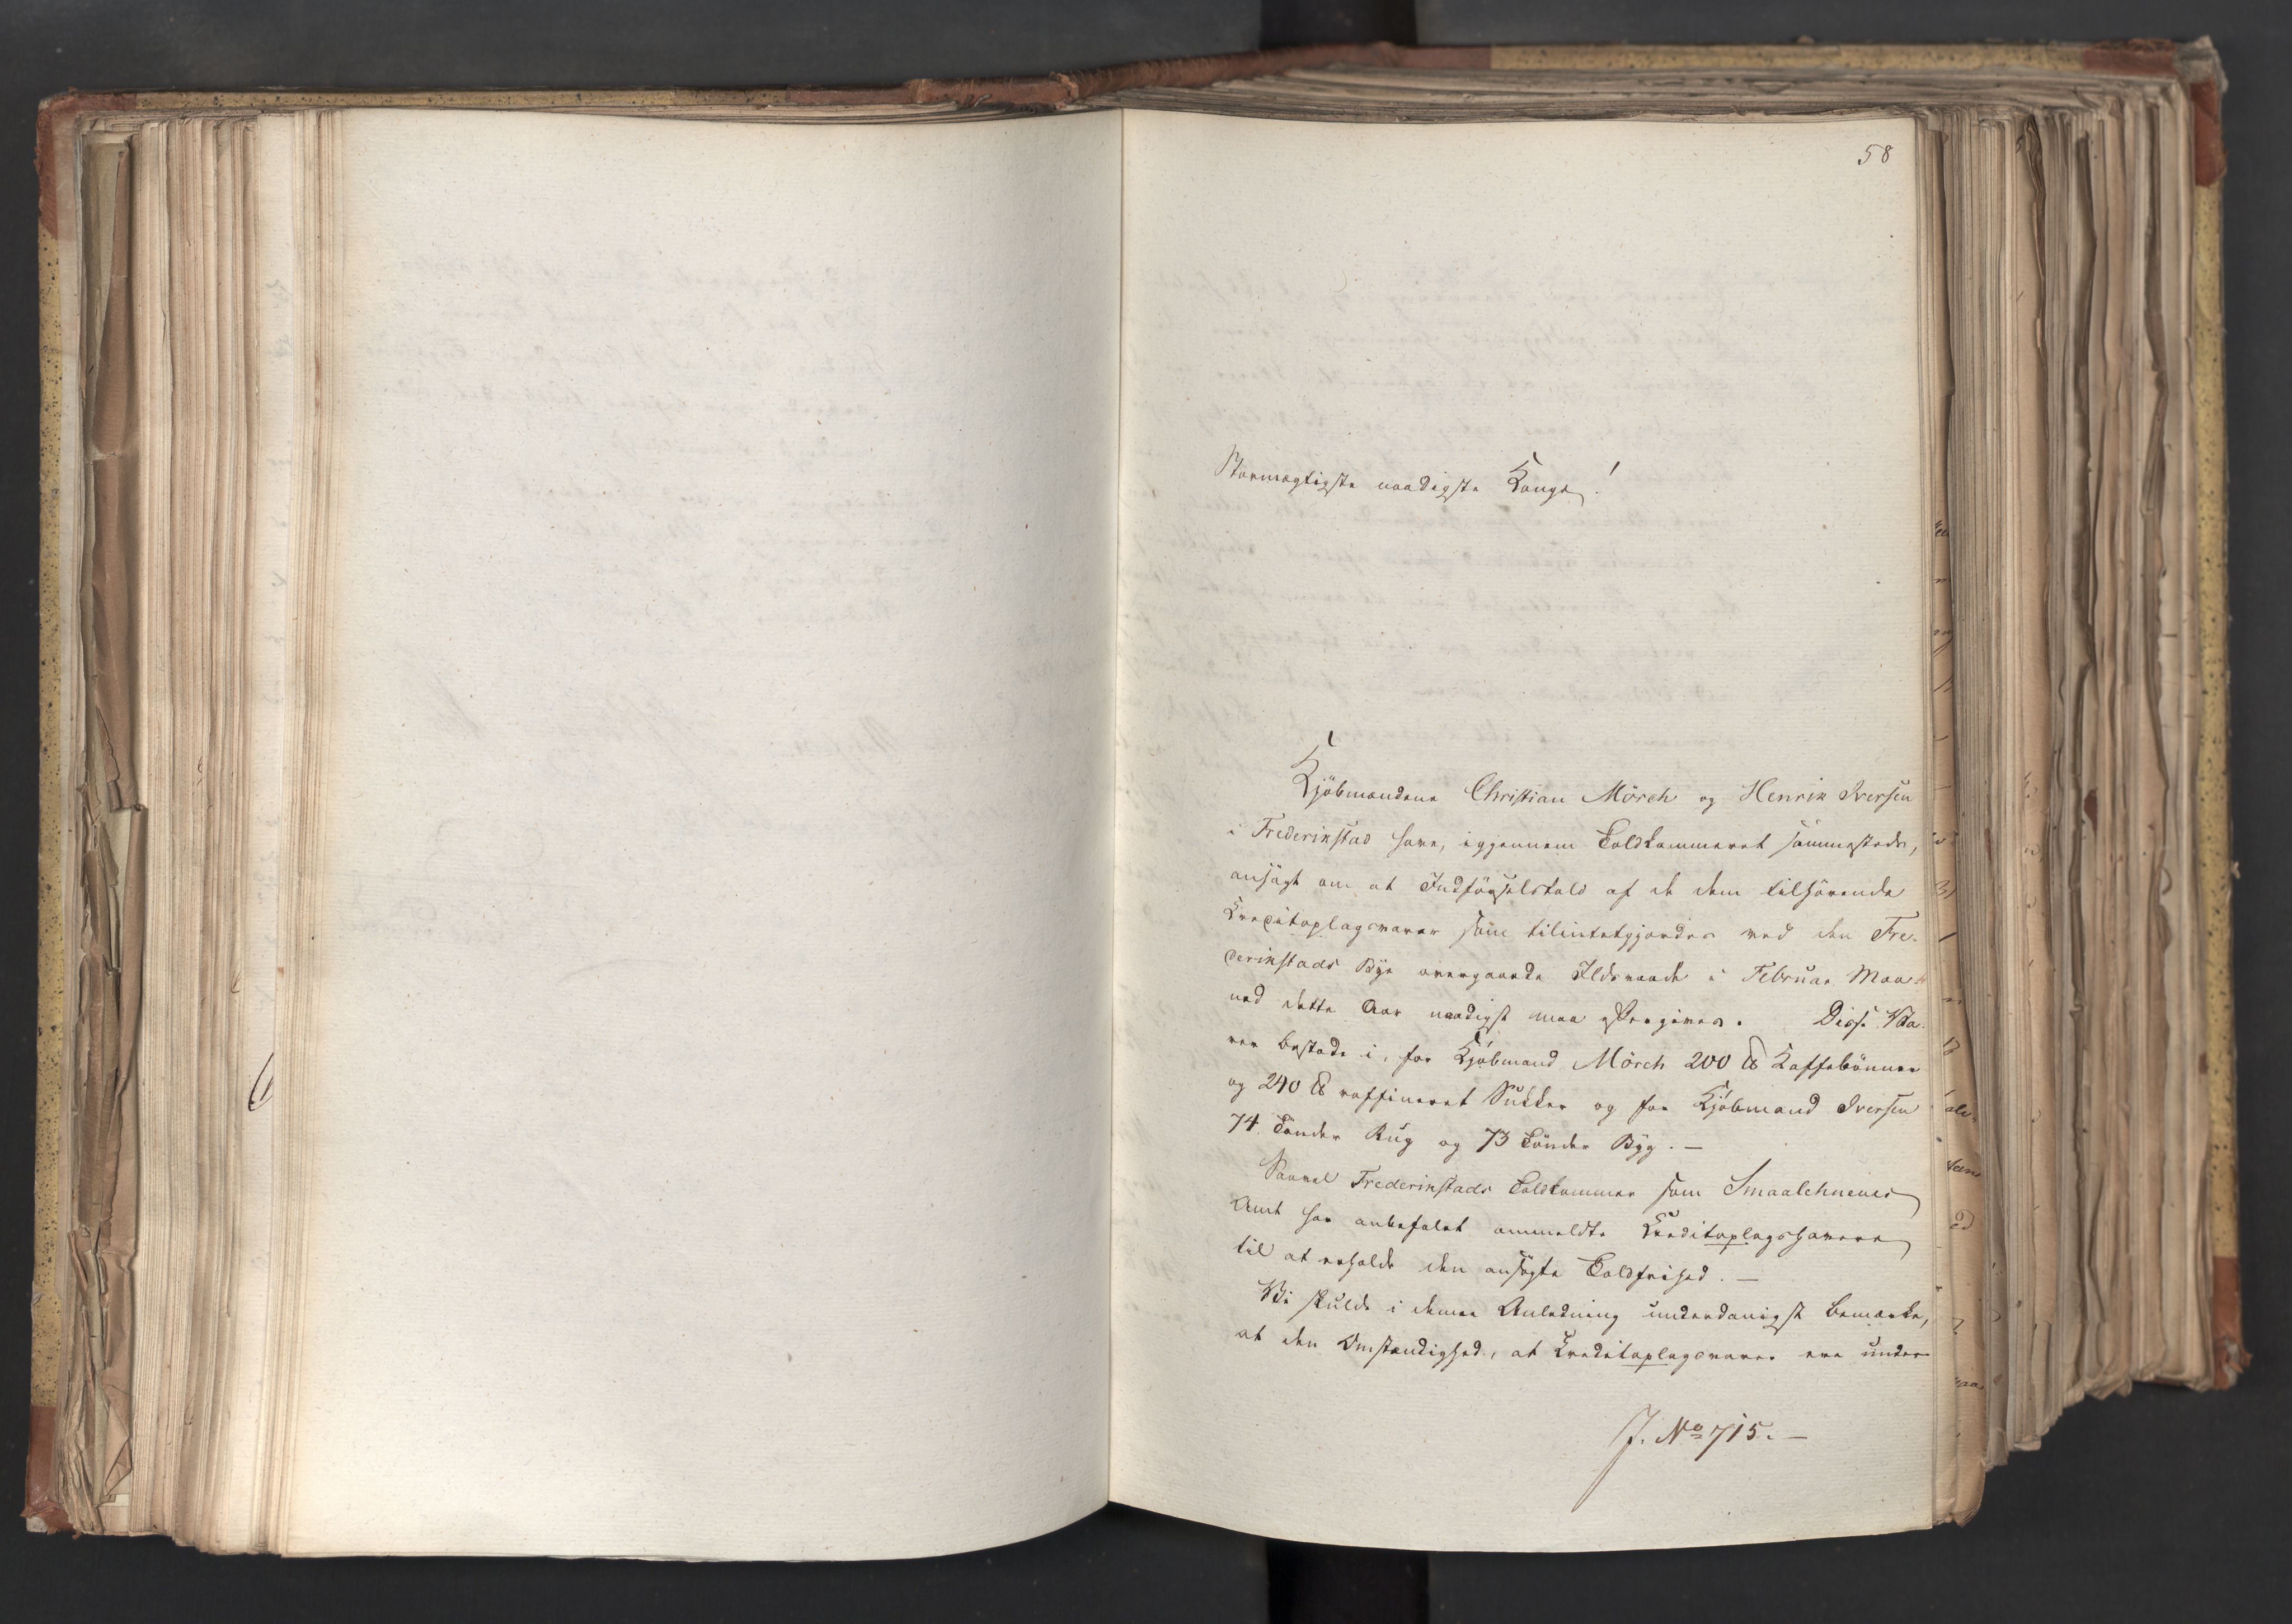 58
Stormægtigste naadigste Konge!
Kjöbmændene Christian Mörch og Henrik Iversen
i Frederikstad have, igjennem Toldkammeret sammesteds,
ansögt om at Indförselstold af de dem tilhörende
Creditoplagsvarer som tilintetgjordes ved den Fre-
derikstads Bye overgaaede Ildsvaade i Februar Maa-
ned dette Aar naadigst maa eftergives. Disse Va-
rer bestode i, for Kjöbmand Mörch 200 ℔ Kaffebönner
og 240 ℔ raffineret Sukker og for Kjöbmand Iversen
74 Tönder Rug og 73 Tönder Byg. —
Saavel Frederikstads Toldkammer som Smaalehnenes
Amt har anbefalet anmeldte Creditoplagshavere
til at erholde den ansögte Toldfrihed. —
Vi skulde i denne Anledning underdanigst bemærke,
at den Omstændighed, at Creditoplagsvarer ere under
J. No 715. —